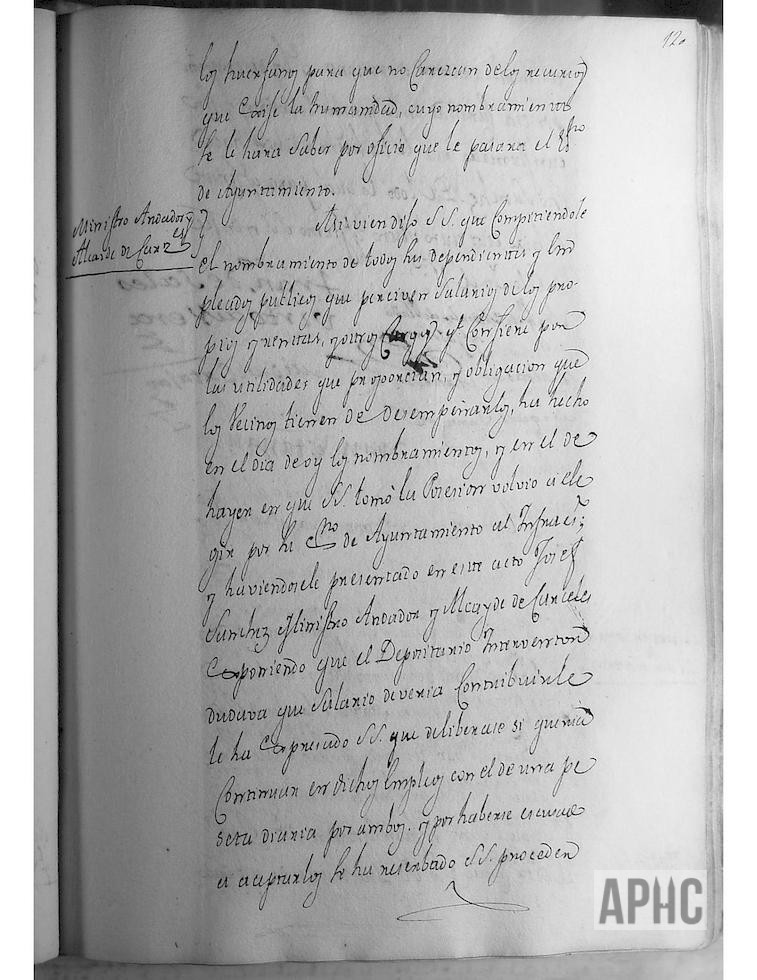 120
los huerfanos para que no Carezcan de los recursos
que Coxise la humanidad, cuyo nombramiento
se le hara saber por oficio que le pasara el Essno
de Ayuntamiento.
Ministro Andador y
Alcaide de Carzes
Asi viendiso S.S. que Compitiendole
el nombramiento de todos los dependientes y Em
pleados publicos que perciven salarios de los pro-
pios y rentas, y otros Cargos qe Confiere por
las utilidades que proporcian, y obligacion que
los Vecinos tienen de desempeñarlos, ha hecho
en el dia de oy los nombramientos, y en el de
hayer en que S.S. tomó la Posesion volvio a ele
gir por su Esno de Ayuntamiento al Infraes;
y haviendosele presentado en este acto Josef
Sanchez Ministro Andador y Alcayde de Carceles
Exponiendo que el Depositario Interventor
dudava que salario deveria Contribuirle
le ha Expresado S.S. que deliberase si queria
Continuar en dichos Empleos con el de una pe
seta diaria por ambos. y por haberse escusad
a aceptarlos se ha reserbado S.S. proceder
APHC